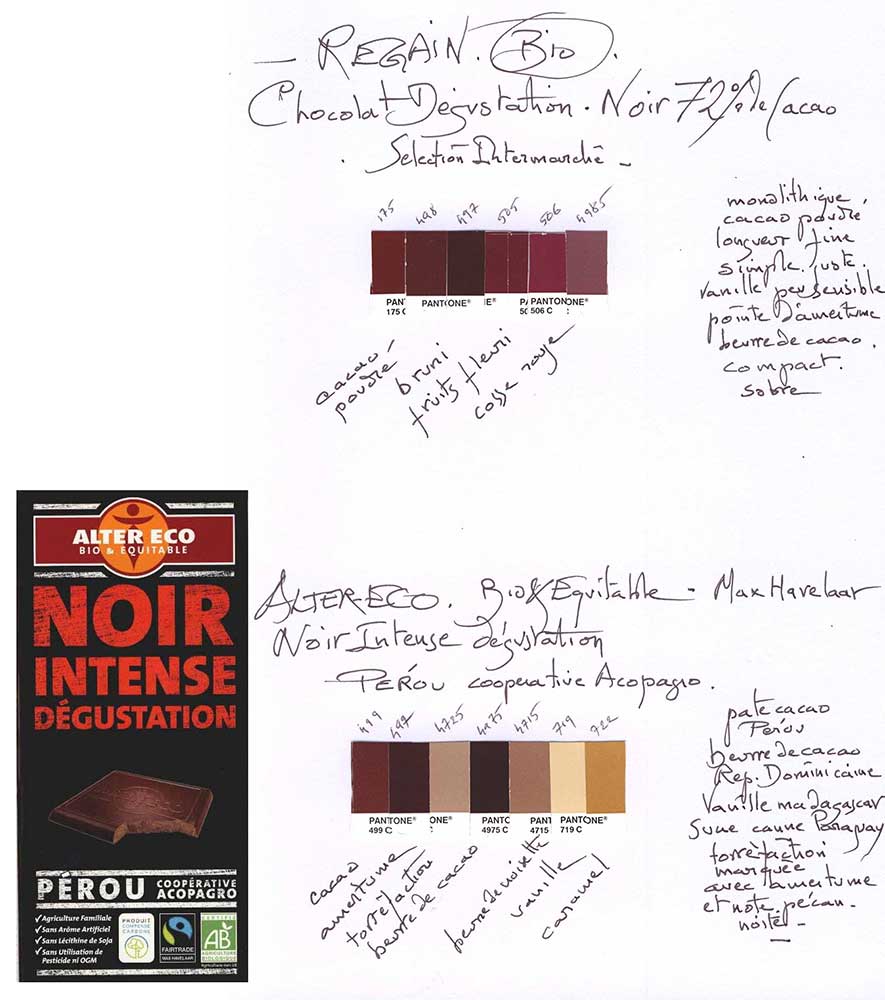 — REGAIN. Bio.
Chocolat Dégustation. Noir 72% de Cacao
. Sélection Intermarché -
175 498 497 505 506 4985
PANTONE® PANTONE® PANTONE®
175 C 506 C
cacao poudre
bruni
fruits fleuri
cosse rouge
monolithique.
cacao poudre
longueur fine
simple. juste.
vanille peu sensible
pointe d'amertume
beurre de cacao.
compact.
sobre
ALTER ECO
BIO & EQUITABLE
NOIR
INTENSE
DÉGUSTATION
PÉROU COOPÉRATIVE
ACOPAGRO
✓Agriculture Familiale
✓Sans Arôme Artificiel
✓Sans Lécithine de Soja
✓Sans Utilisation de
Pesticide ni OGM
PRODUIT
COMPENSÉ
CARBONE
FAIRTRADE
MAX HAVELAAR
CERTIFIÉ
AB
AGRICULTURE
BIOLOGIQUE
ALTER-ECO. Bio & Equitable - Max Havelaar
Noir Intense dégustation
- PÉROU coopérative Acopagro.
499 497 4725 4975 4715 719 722
PANTONE® PANTONE® PANTONE®
499 C 4975 C 4715 719 C
cacao
amertume
torréfaction
beurre de cacao
beurre de noisette
vanille
caramel
pate cacao
Pérou
beurre de cacao
Rep. Dominicaine
Vanille madagascar
Sucre canne Paraguay
torréfaction
marquée
avec amertume
et note pécan.